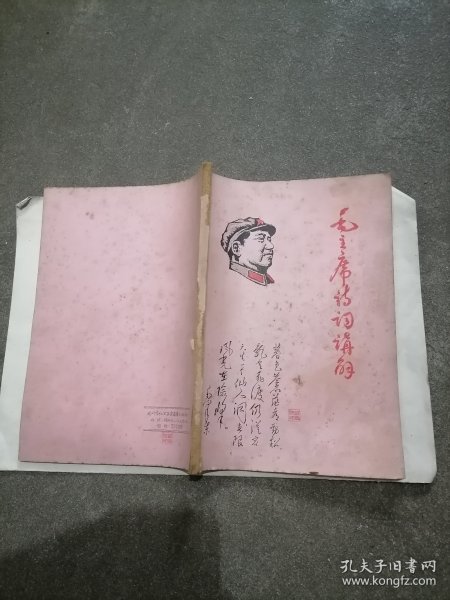 毛主席诗词講解
暮色苍茫看劲松
乱云飞渡仍从容
天生一个仙人洞无限
风光在险峰
毛泽东
孔夫子旧书网
www.kongfz.com